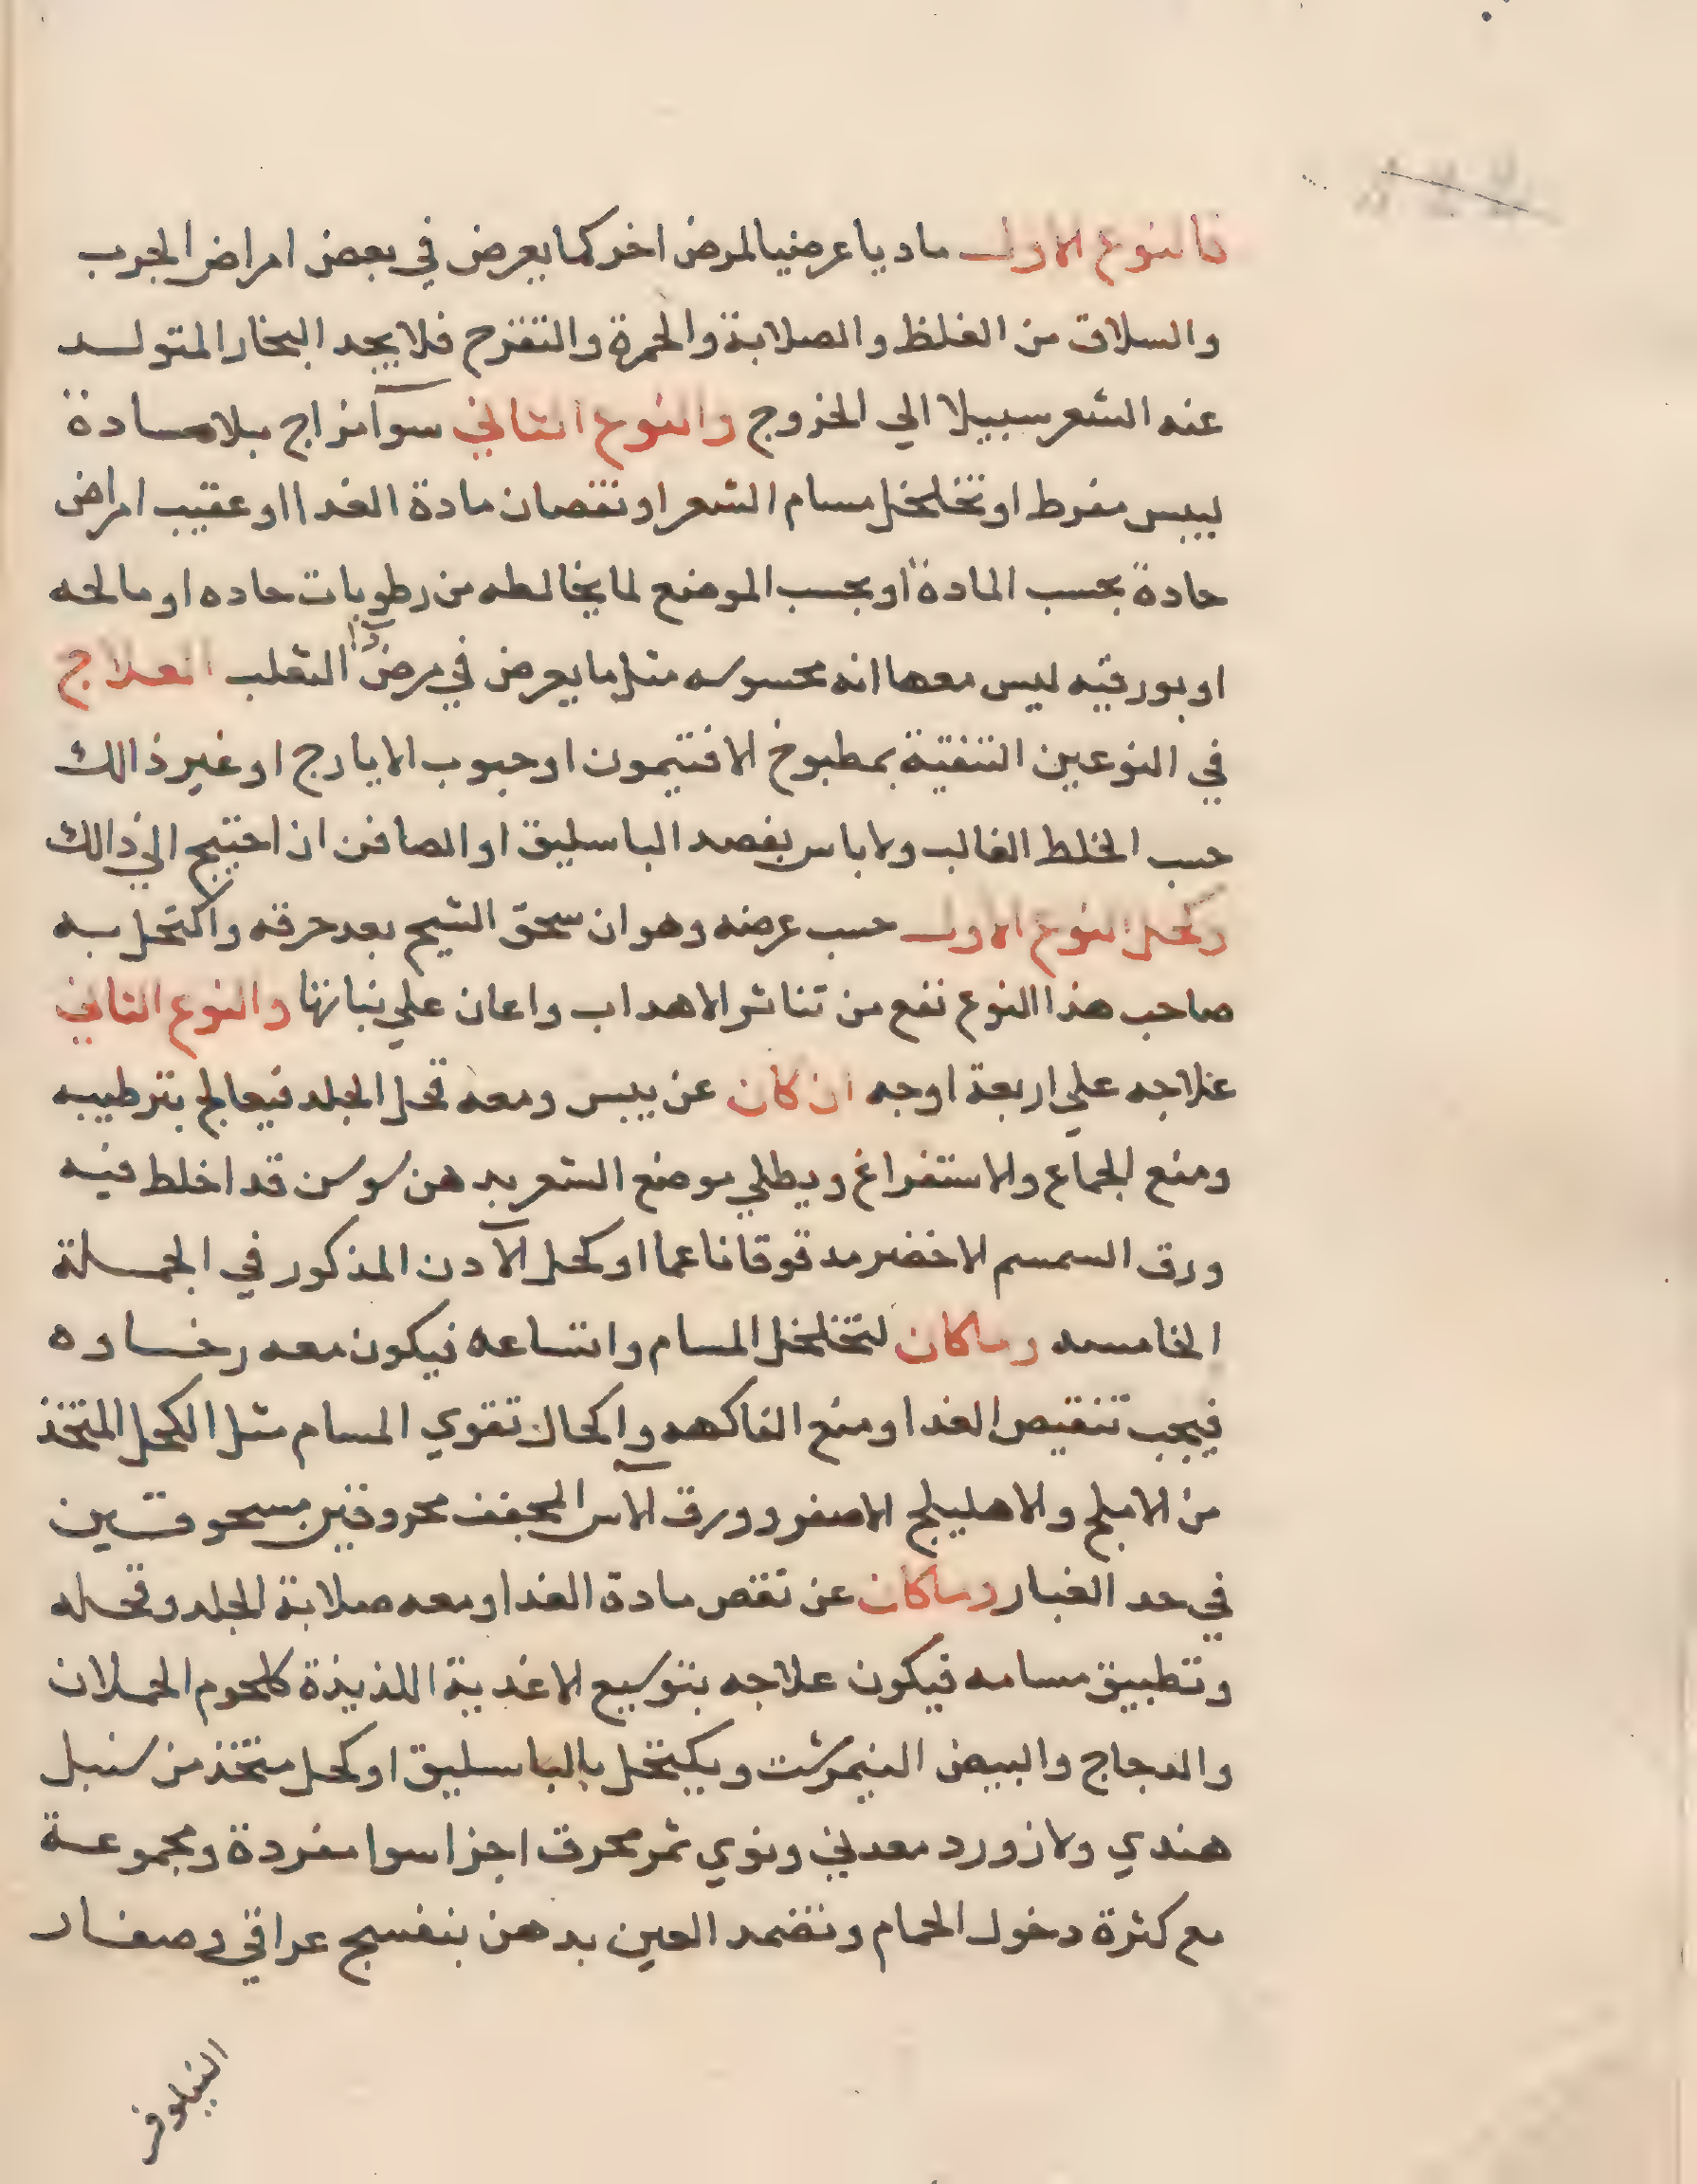 فالنوع الاول ماديا عرضيا لمرض اخر كما يعرض في بعض امراض الجرب
والسلاق من الغلظ والصلابة والحمرة والتقرح فلا يجد البخار المتولد
عنه الشعر سبيلا الي الخروج والنوع الثاني سوآمزاج بلا مادة
ليبس مفرط او تخلخل مسام الشعر او نقصان مادة الغدا او عقيب امراض
حادة بحسب المادة او بحسب الموضع لما يخالطه من رطوبات حاده او مالحه
او بورقيه ليس معها انه محسوسه مثل ما يعرض في مرض دآ الثعلب العلاج
في النوعين التنقية بمطبوخ الافتيمون او حبوب الايارج او غير ذالك
حسب الخلط الغالب ولا باس بفصد الباسليق او الصافن اذ احتيج الي ذالك
وكحل النوع الاول حسب عرضه وهو ان سحق الشيح بعد حرقه واكتحل به
صاحب هذا النوع نفع من تناثر الاهداب واعان علي نباتها والنوع الثاني
علاجه علي اربعة اوجه ان كان عن يبس ومعه قحل الجلد فيعالج بترطيبه
ومنع الجماع والاستفراغ ويطلي موضع الشعر بدهن سوسن قد اخلط فيه
ورق السمسم الاخضر مدقوقا ناعما او كحل الآدن المذكور في الجملة
الخامسه وماكان لتخلخل المسام واتساعه فيكون معه رخاوه
فيجب تنقيص الغدا ومنع الفاكهه واكحال تقوي المسام مثل الكحل المتخذ
من الاملج والاهليلج الاصفر وورق الآس المجفف محروقين مسحوقين
في حد الغبار وماكان عن نقص مادة الغدا ومعه صلابة الجلد وقحله
وتطبيق مسامه فيكون علاجه بتوسيع الاغدية اللذيذة كلحوم الحملان
والدجاج والبيض النيمرشت ويكتحل بالباسليق او كحل متخذ من سنبل
هندي ولازورد معدني ونوي تمر محرق اجزا سوا مفردة ومجموعة
مع كثرة دخول الحمام وتضمد العين بدهن بنفسج عراقي وصفار
النيلوفر